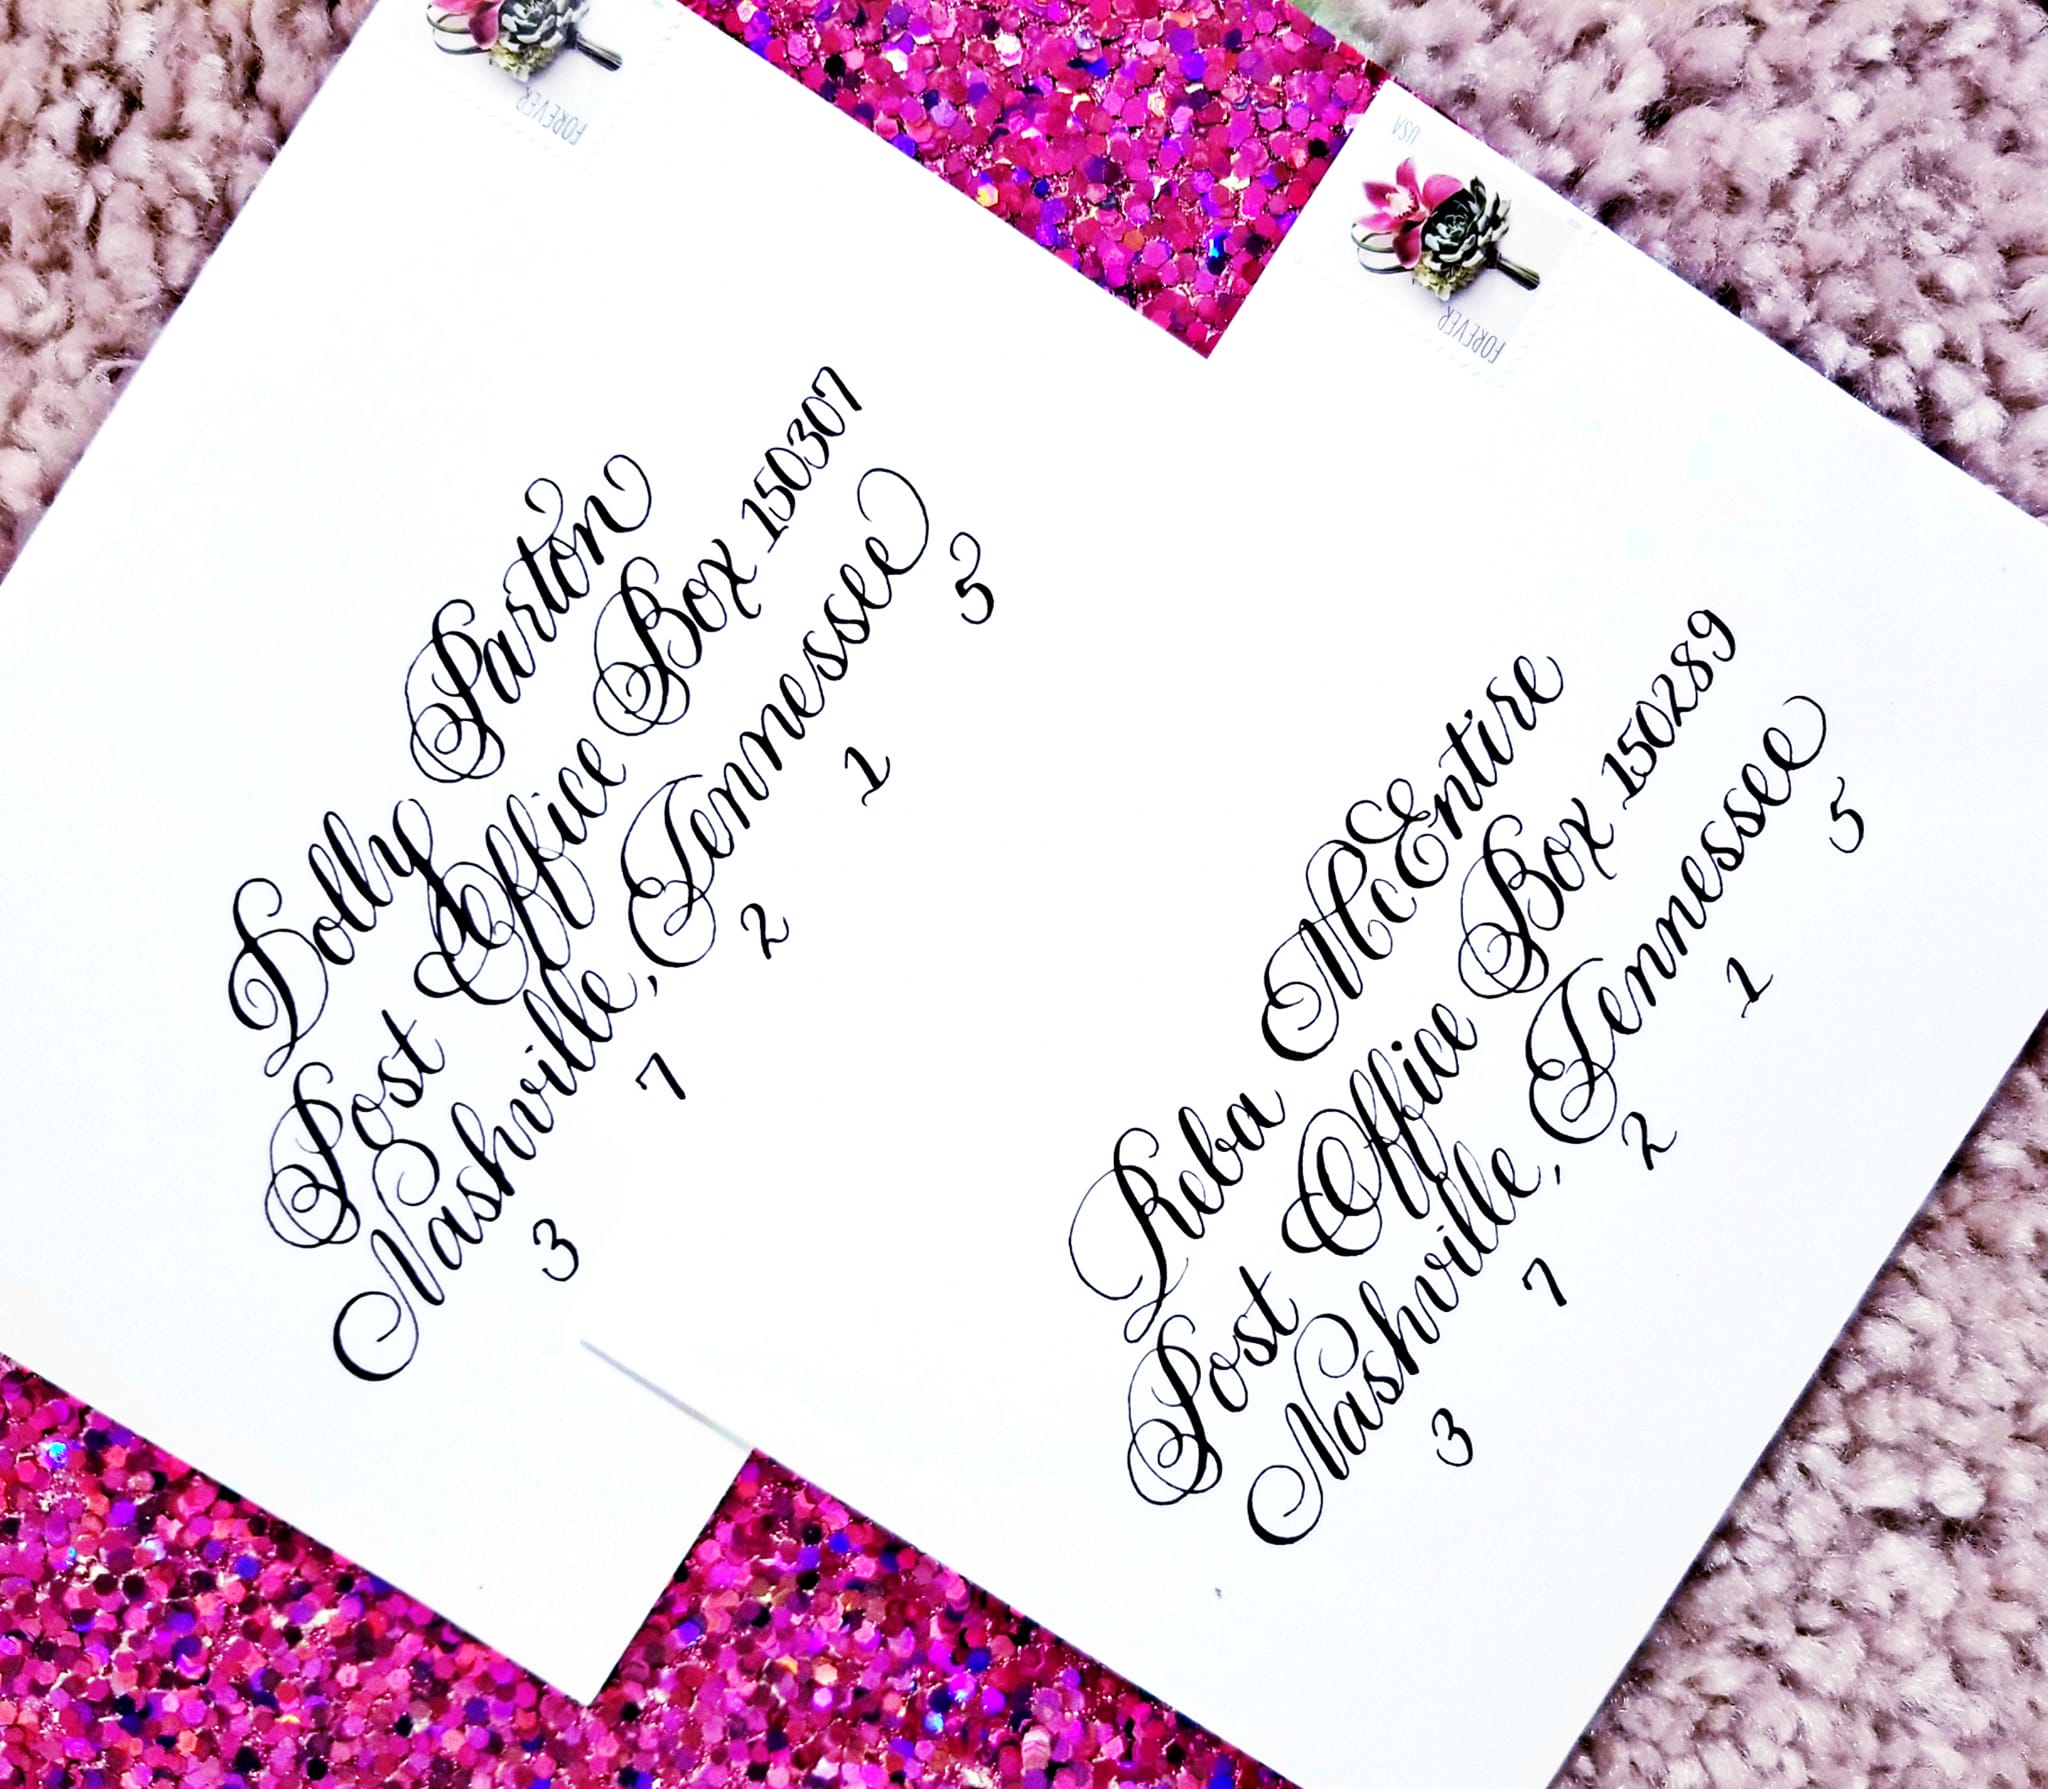 FOREVER
Dolly Parton
Post Office Box 150307
Nashville, Tennessee
3 7 2 1 5
USA
FOREVER
Reba McEntire
Post Office Box 150289
Nashville, Tennessee
3 7 2 1 5